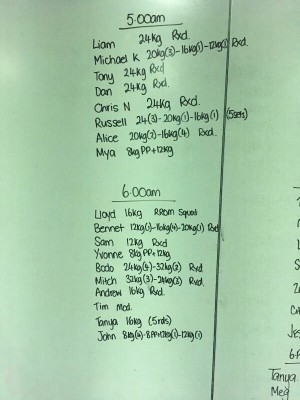 5:00am
Liam 24kg Rxd.
Michael K 20kg(3)-16kg(1)-12kg(1) Rxd.
Tony 24kg Rxd
Dan 24kg Rxd.
Chris N 24kg Rxd.
Russell 24(3)-20kg(1)-16kg(1) (5sets)
Alice 20kg(2)-16kg(4) Rxd.
Mya 8kg PP+12kg
6:00am
Lloyd 16kg RROM Squat
Bennet 12kg(1)-16kg(4)-20kg(1) Rxd
Sam 12kg Rxd
Yvonne 8kg PP+12kg
Bodo 24kg(4)-32kg(2) Rxd
Mitch 32kg(3)-24kg(3) Rxd.
Andrew 16kg Rxd.
Tim Mod.
Tanya 16kg (5rds)
John 8kg(4)-8PP+12kg(1)-12kg(1)
Tanya
Meg